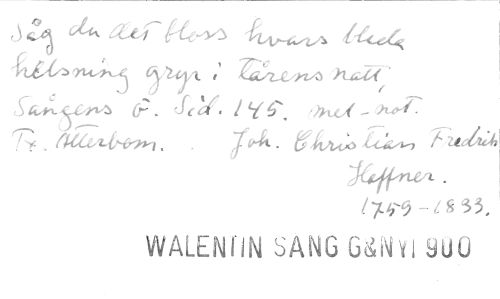 Såg du det bloss hvars bleka
helsning gryr i tårens natt,
Sångens ö. Sid. 145. mel-not.
Tx. Atterbom. Joh. Christian Fredrik
Haffner.
1759-1833.
WALENTIN SANG G&NYI 900